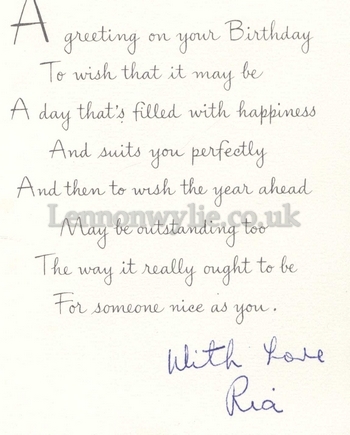 A greeting on your Birthday
To wish that it may be
A day that's filled with happiness
And suits you perfectly
And then to wish the year ahead
Lennonwylie.co.uk
May be outstanding too
The way it really ought to be
For someone nice as you.
With Love
Ria